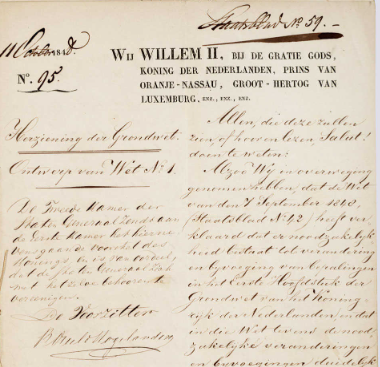 Staatsblad No. 59.
11 October 1848.
No. 95.
WIJ WILLEM II, BIJ DE GRATIE GODS,
KONING DER NEDERLANDEN, PRINS VAN
ORANJE-NASSAU, GROOT-HERTOG VAN
LUXEMBURG, ENZ., ENZ., ENZ.
Herziening der Grondwet.
Ontwerp van Wet No. 1.
De Tweede Kamer der
Staten Generaal zendt aan
de Eerste Kamer het hierne-
vensgaande voorstel des
Konings, en is van oordeel,
dat de Staten Generaal zich
met hetzelve behooren te
vereenigen.
De Voorzitter
Allen, die deze zullen
zien of hooren lezen, Salut!
doen te weten:
Alzoo Wij in overweging
genomen hebben, dat de Wet
van den 7 September 1848,
(Staatsblad No. 42) heeft ver-
klaard dat er noodzakelijk-
heid bestaat tot verandering
en bijvoeging van bepalingen
in het Eerste Hoofdstuk der
Grondwet van het Konink-
rijk der Nederlanden, en dat
in die Wet tevens de nood-
zakelijke veranderingen
en bijvoegingen duidelijk